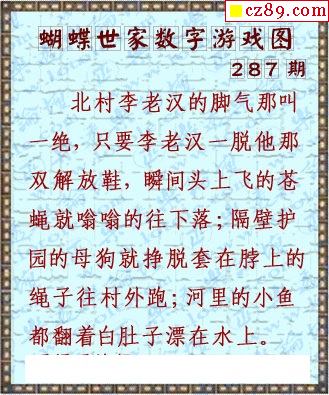 cz89.com
蝴蝶世家数字游戏图
287期
北村李老汉的脚气那叫
一绝，只要李老汉一脱他那
双解放鞋，瞬间头上飞的苍
蝇就嗡嗡的往下落；隔壁护
园的母狗就挣脱套在脖上的
绳子往村外跑；河里的小鱼
都翻着白肚子漂在水上。